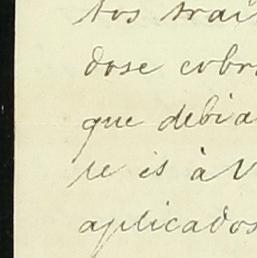 tos trai
dose cobr
que debia
se is à V
aplicados